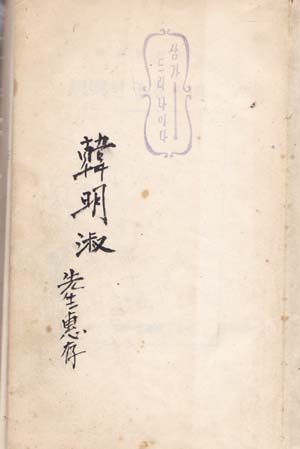 삼가
드리나이다
韓明淑
先生惠存